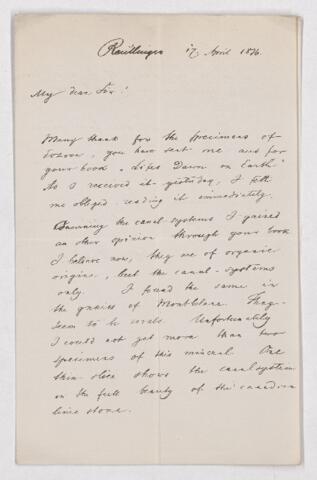 Reutlingen 17 April 1876.
My dear Sir!
Many thank for the specimens of
Eozoon, you have sent me and for
your book „Lifes Dawn on Earth“
As I received it yesterday, I felt
me obliged reading it immediately.
Concerning the canal-systems I gained
an other opinion through your book
I believe now, they are of organic
origine, but the canal-systems
only. I found the same in
the gneiss of Montblanc. They
seem to be corals. Unfortunately
I could not get more than two
specimens of this mineral. One
thin slice shows the canalsystem
in the full beauty of the canadian
lime stone.